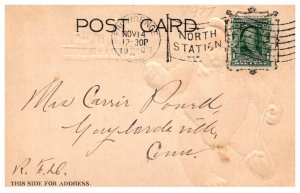 POST CARD
NOV 14
12-30P
NORTH
STATION
Mrs Carrie Powell
Gaylordsville,
Conn.
R.F.D.
THIS SIDE FOR ADDRESS.